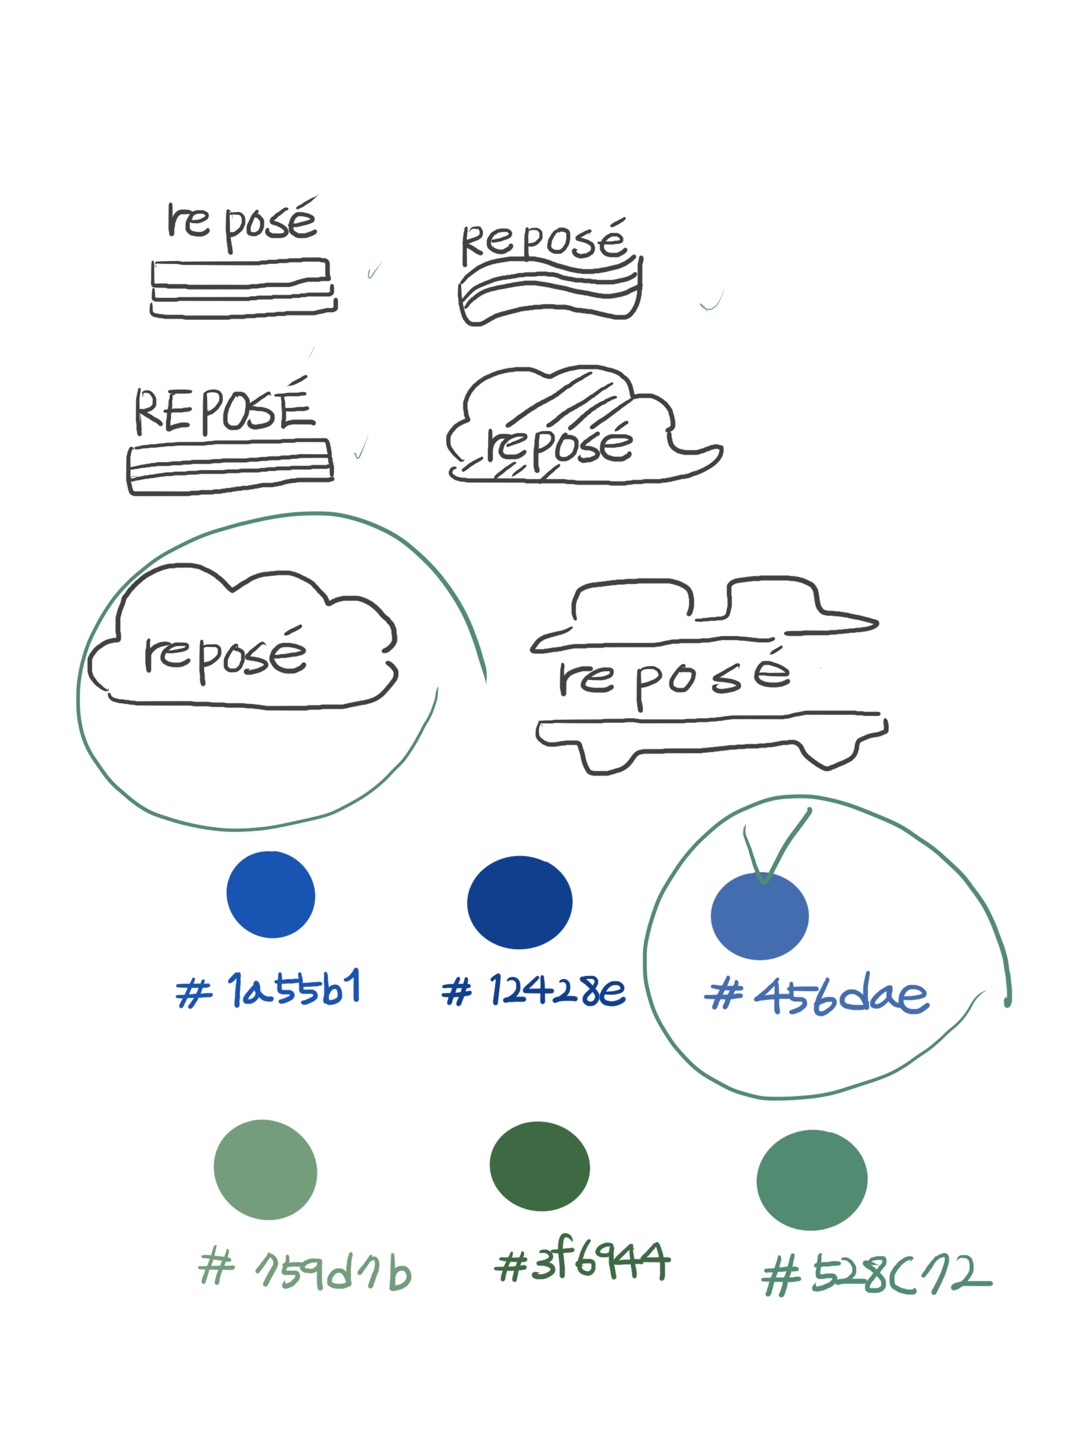 reposé
Reposé
REPOSÉ
reposé
reposé
reposé
#1a55b1
#12428e
#456dae
#759d7b
#3f6944
#528C72